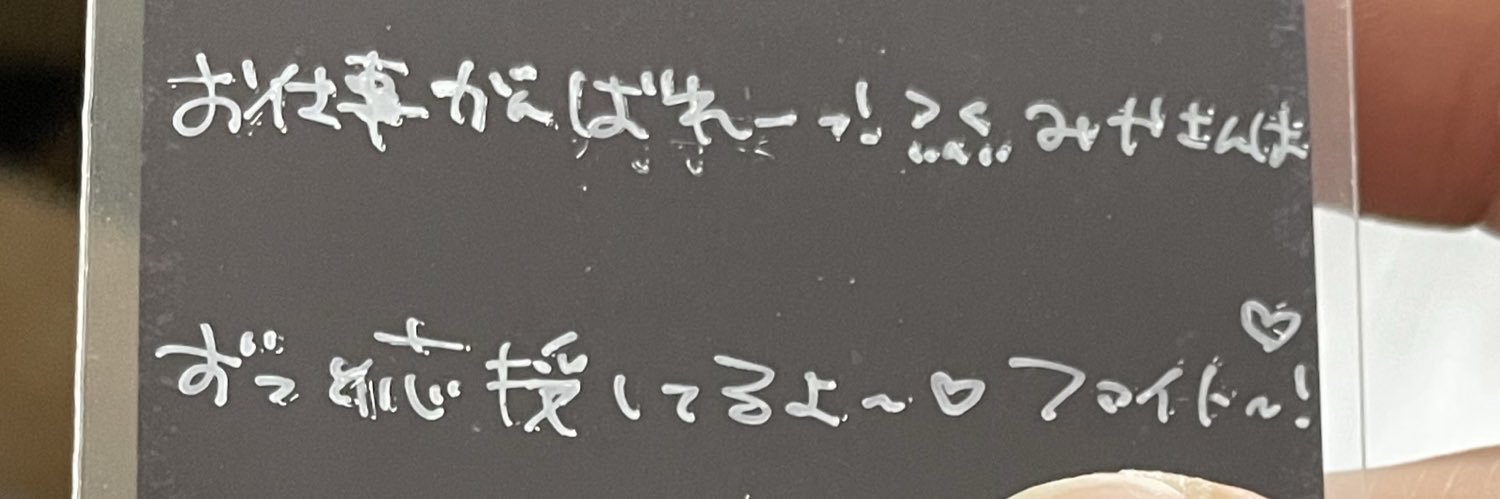 お仕事がんばれーっ! >⩊< みやさんは
ずっと応援してるよ〜♡ ファイト〜!♡